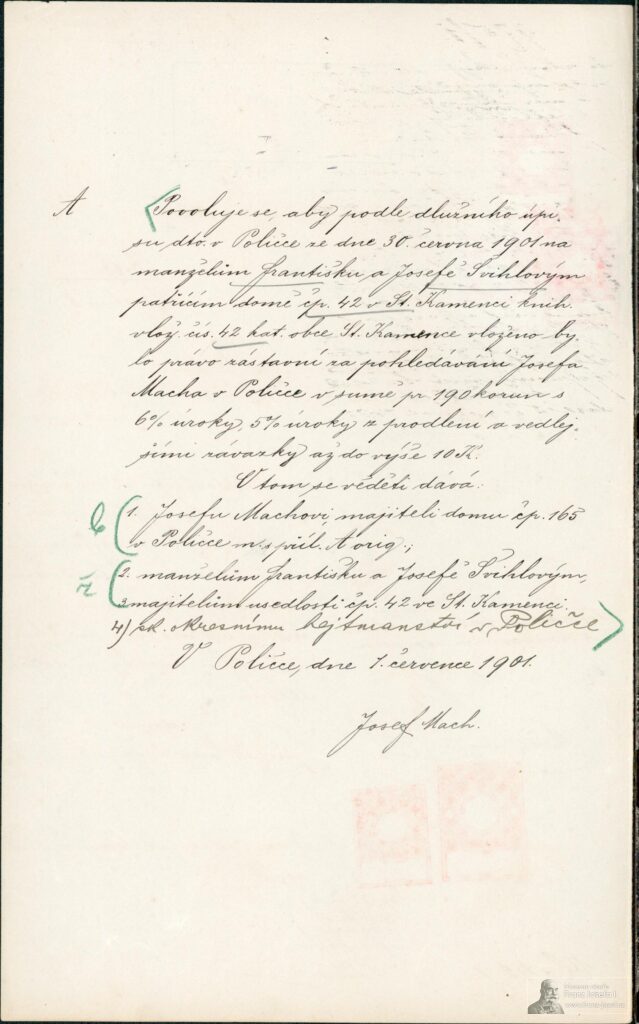 A Povoluje se, aby podle dlužního úpi,
su dto. v Poličce ze dne 30. června 1901 na
manželům Františku a Josefě Švihlovým
patřícím domě čp. 42 v St. Kamenci knih.
vlož. čís. 42 kat. obce St. Kamence vloženo by,
lo právo zástavní za pohledávání Josefa
Macha v Poličce v sumě pr 190 korun s
6% úroky, 5% úroky z prodlení a vedlej,
šími závazky až do výše 10 K.
O tom se věděti dává:
b 1. Josefu Machovi, majiteli domu čp. 165
v Poličce m. s příl. A orig.;
ž 2. manželům Františku a Josefě Švihlovým,
3. majitelům usedlosti čp. 42 ve St. Kamenci.
4) sl. okresnímu hejtmanství v Poličce
V Poličce, dne 1. července 1901.
Josef Mach.
Franz Josef I.